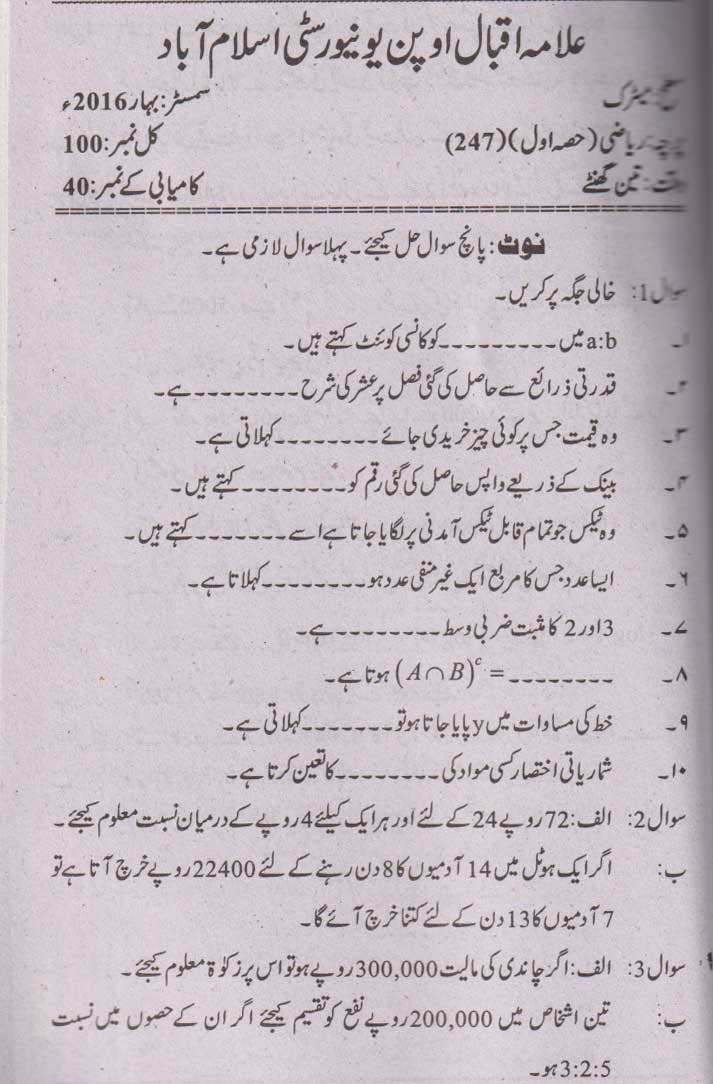 علامہ اقبال اوپن یونیورسٹی اسلام آباد
سطح: میٹرک سمسٹر: بہار 2016ء
پرچہ: ریاضی (حصہ اول) (247) کل نمبر: 100
وقت: تین گھنٹے کامیابی کے نمبر: 40
نوٹ: پانچ سوال حل کیجئے۔ پہلا سوال لازمی ہے۔
سوال 1: خالی جگہ پر کریں۔
۱۔ a:b میں ـــــــــ کو کانسی کوئنٹ کہتے ہیں۔
۲۔ قدرتی ذرائع سے حاصل کی گئی فصل پر عشر کی شرح ـــــــــ ہے۔
۳۔ وہ قیمت جس پر کوئی چیز خریدی جائے ـــــــــ کہلاتی ہے۔
۴۔ بینک کے ذریعے واپس حاصل کی گئی رقم کو ـــــــــ کہتے ہیں۔
۵۔ وہ ٹیکس جو تمام قابل ٹیکس آمدنی پر لگایا جاتا ہے اسے ـــــــــ کہتے ہیں۔
۶۔ ایسا عدد جس کا مربع ایک غیر منفی عدد ہو ـــــــــ کہلاتا ہے۔
۷۔ 3 اور 2 کا مثبت ضربی وسط ـــــــــ ہے۔
۸۔ ـــــــــ = (A ∩ B)ᶜ ہوتا ہے۔
۹۔ خط کی مساوات میں y پایا جاتا ہو تو ـــــــــ کہلاتی ہے۔
۱۰۔ شماریاتی اختصار کسی مواد کی ـــــــــ کا تعین کرتا ہے۔
سوال 2: الف: 72 روپے 24 کے لئے اور ہر ایک کیلئے 4 روپے کے درمیان نسبت معلوم کیجئے۔
ب: اگر ایک ہوٹل میں 14 آدمیوں کا 8 دن رہنے کے لئے 22400 روپے خرچ آتا ہے تو
7 آدمیوں کا 13 دن کے لئے کتنا خرچ آئے گا۔
سوال 3: الف: اگر چاندی کی مالیت 300,000 روپے ہو تو اس پر زکوٰۃ معلوم کیجئے۔
ب: تین اشخاص میں 200,000 روپے نفع کو تقسیم کیجئے اگر ان کے حصوں میں نسبت
3:2:5 ہو۔